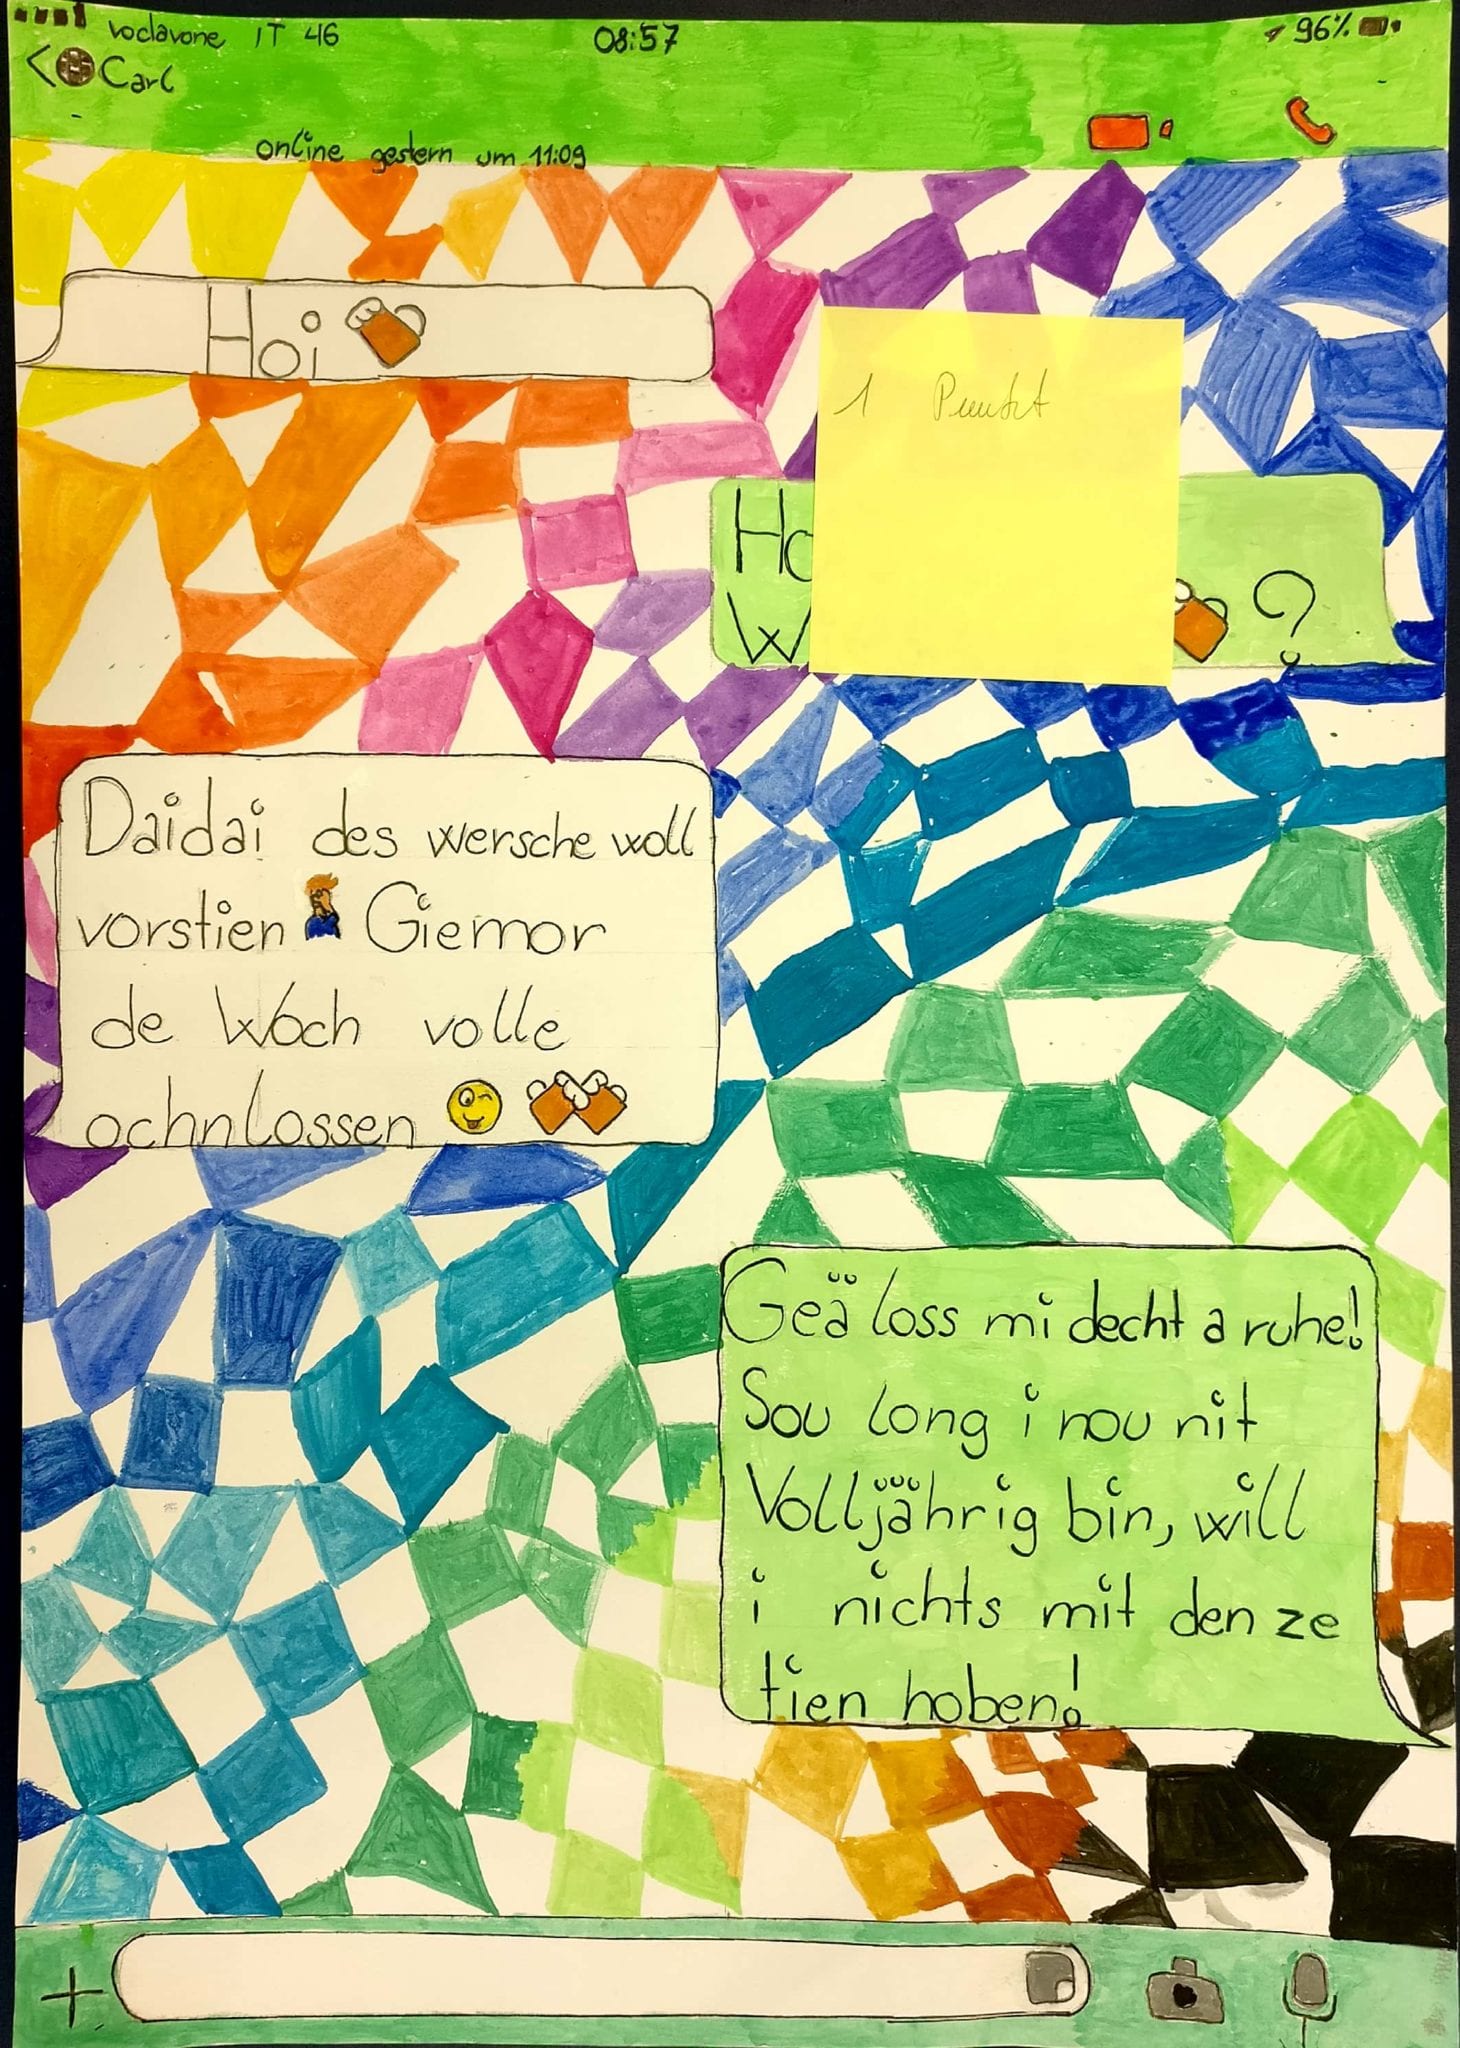 voclavone IT 4G
08:57
96%
Carl
online gestern um 11:09
Hoi
1 Punkt
?
Daidai des wersche woll
vorstien Giemor
de Woch volle
ochnlossen
Geä loss mi decht a ruhe!
Sou long i nou nit
Volljährig bin, will
i nichts mit den ze
tien hoben!